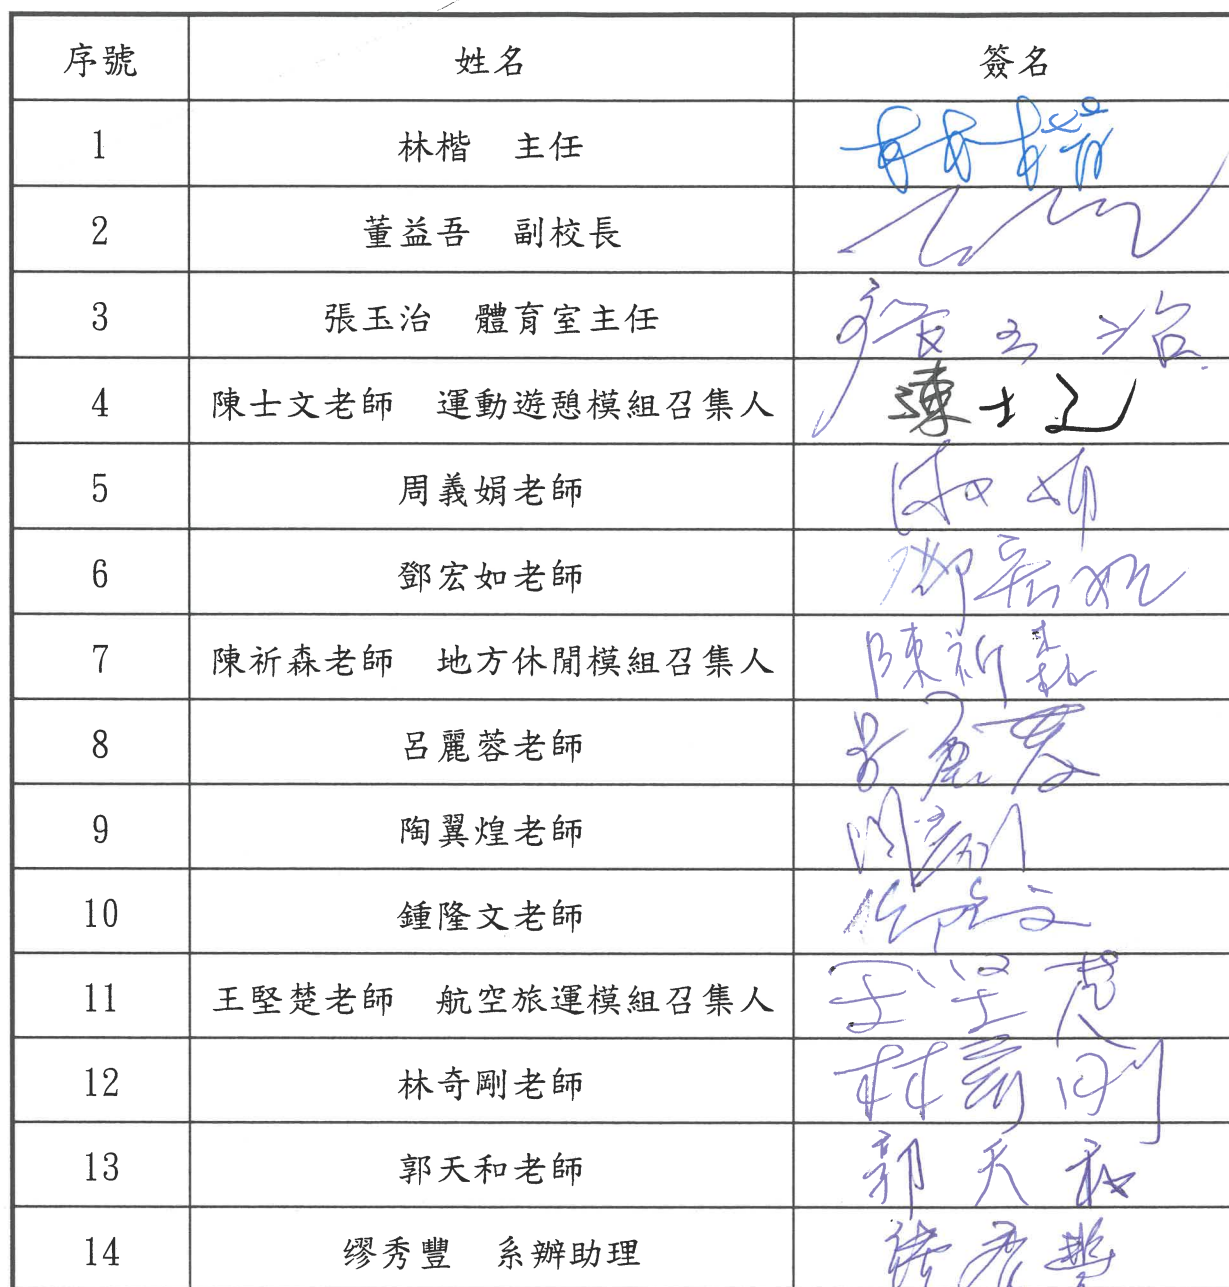 序號 姓名 簽名
1 林楷 主任 林楷
2 董益吾 副校長
3 張玉治 體育室主任 張玉治
4 陳士文老師 運動遊憩模組召集人 陳士文
5 周義娟老師
6 鄧宏如老師 鄧宏如
7 陳祈森老師 地方休閒模組召集人 陳祈森
8 呂麗蓉老師 呂麗蓉
9 陶翼煌老師
10 鍾隆文老師
11 王堅楚老師 航空旅運模組召集人 王堅楚
12 林奇剛老師 林奇剛
13 郭天和老師 郭天和
14 缪秀豐 系辦助理 缪秀豐